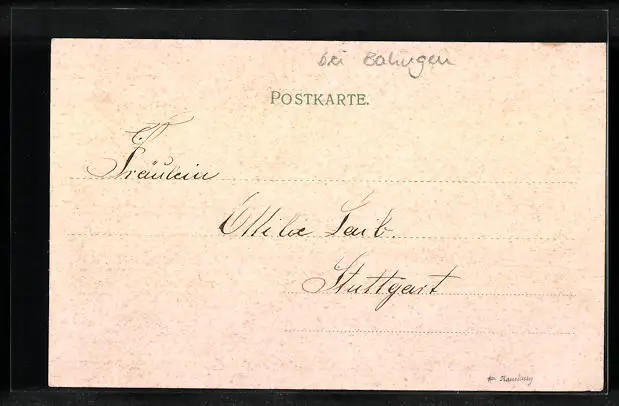 bei Balingen
POSTKARTE.
Fräulein
Ottilie Saib.
Stuttgart